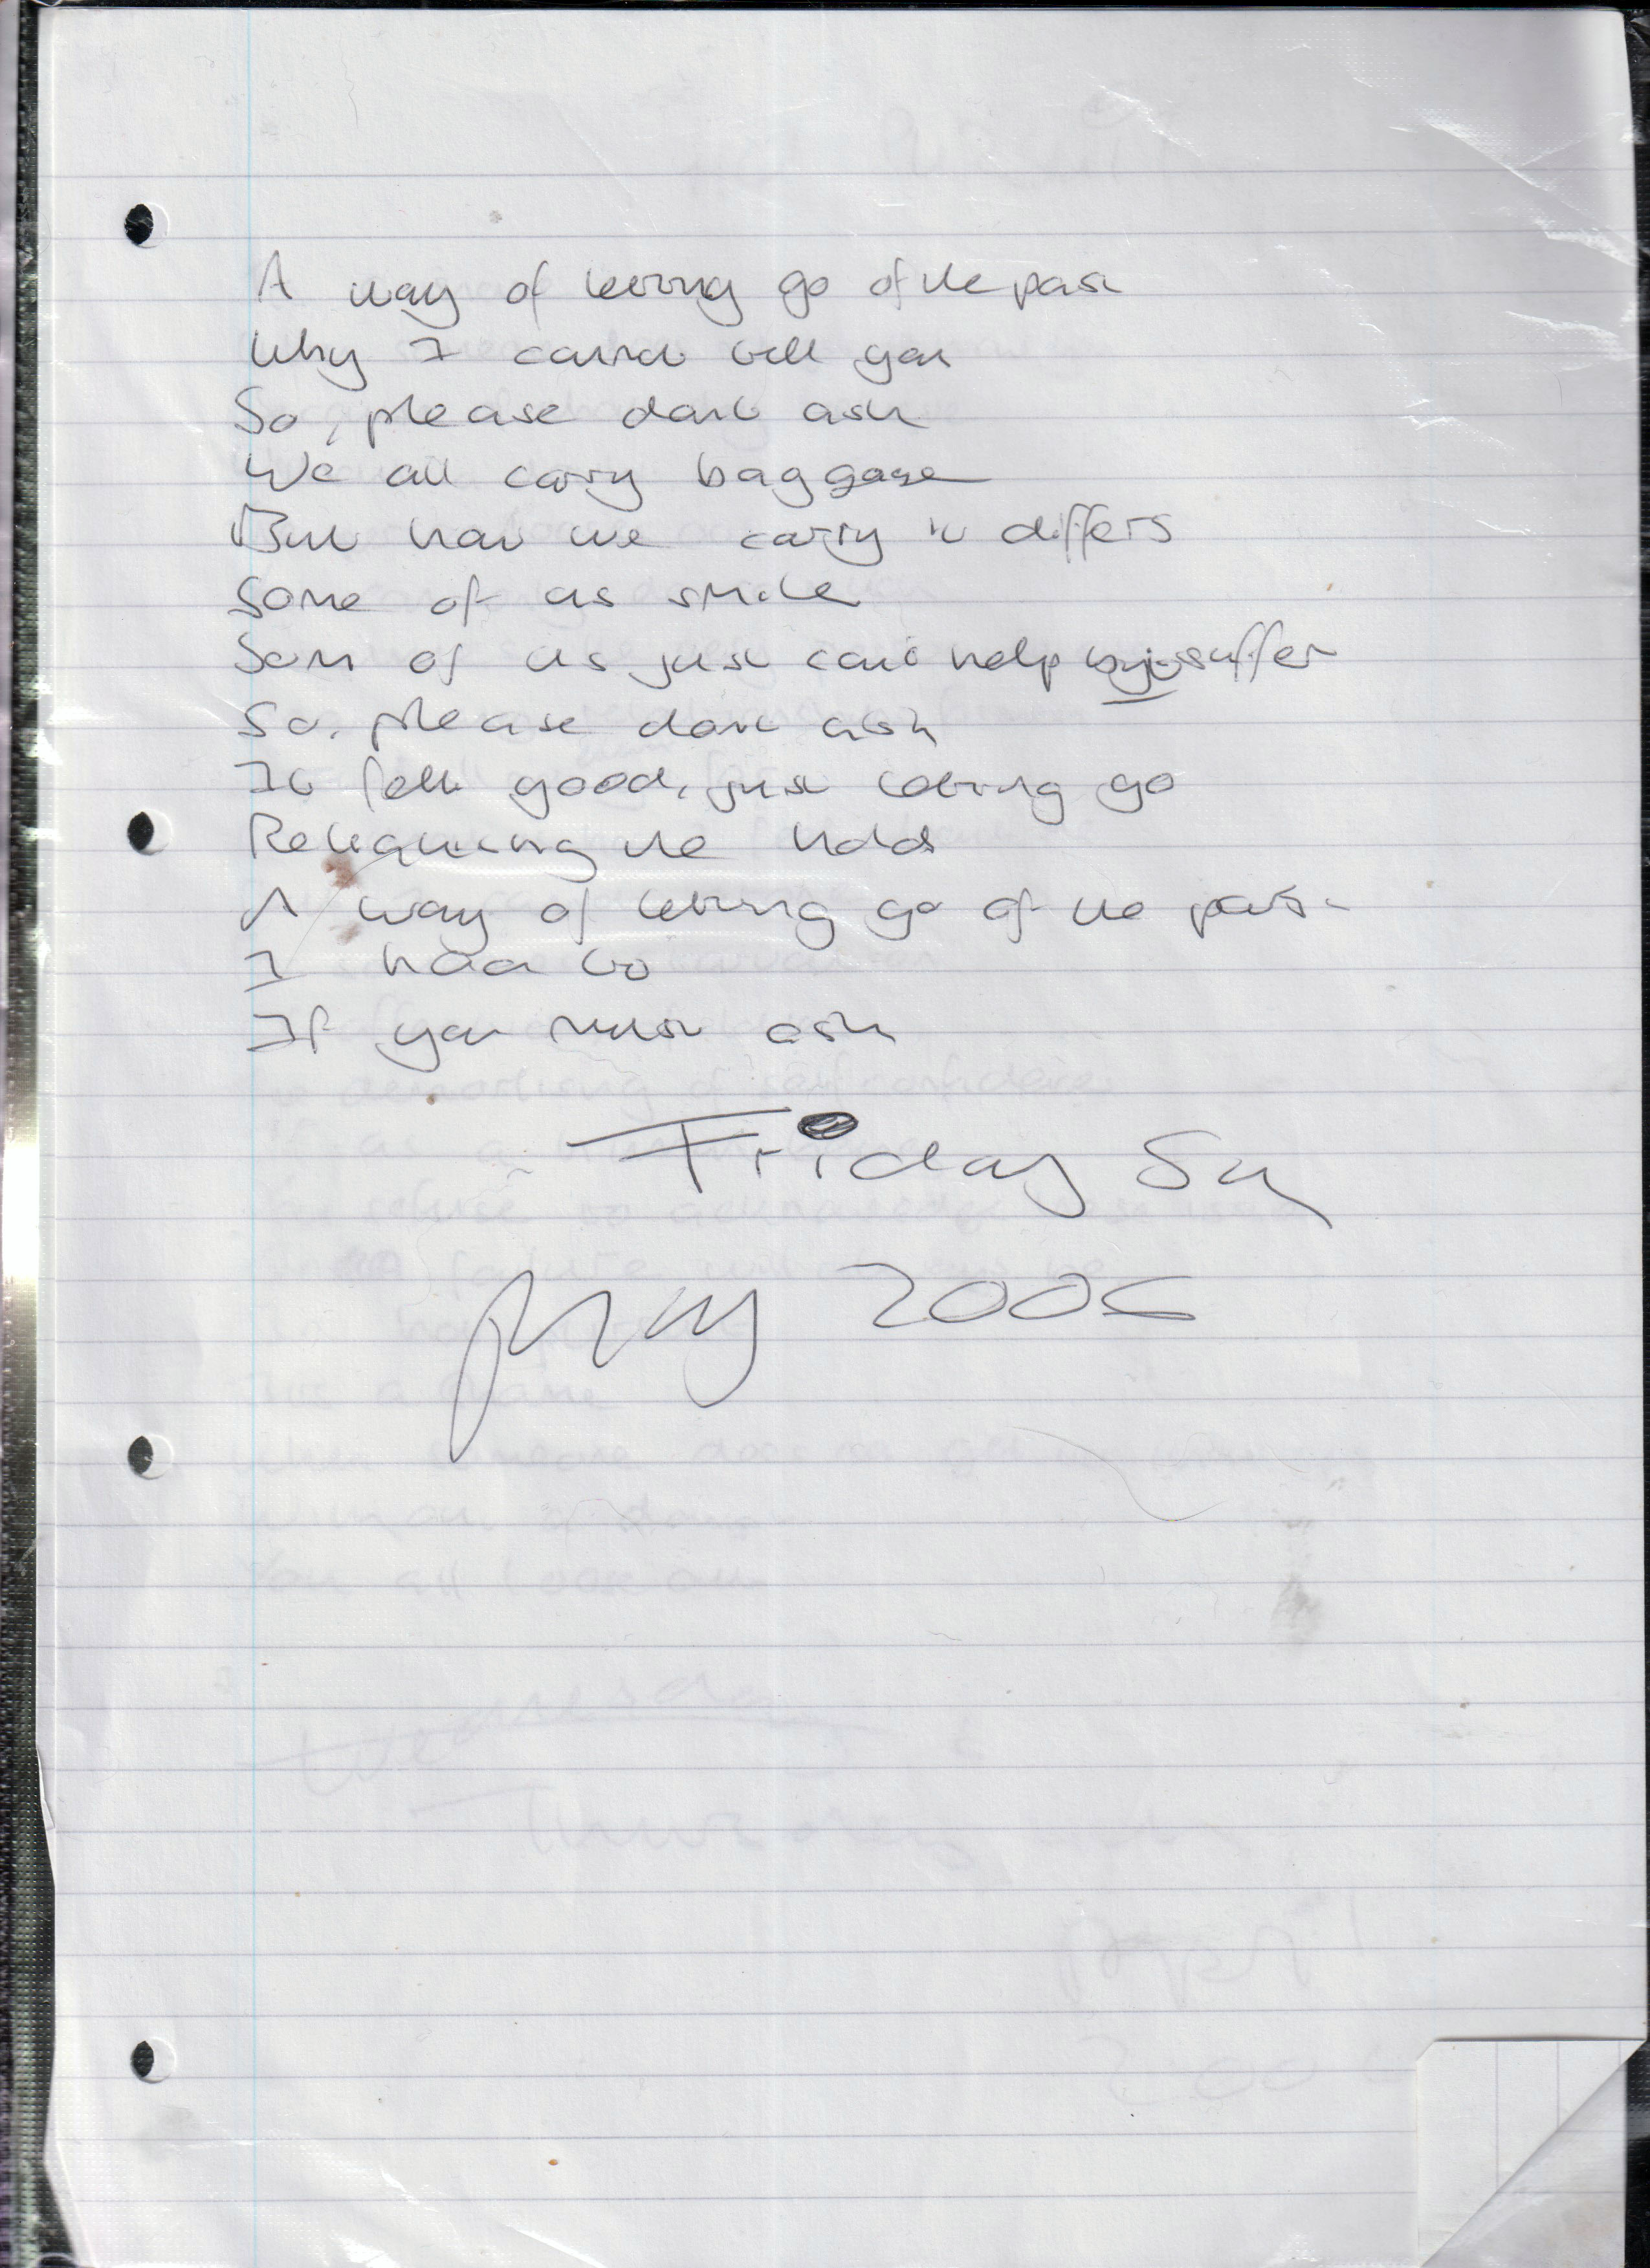 A way of letting go of the past
Why I cannot tell you
So, please don't ask
We all carry baggage
But how we carry it differs
Some of us smile
Som of us just can't help but suffer
So, please don't ask
It felt good, just letting go
the holds
A way of letting go of the past
I had to
If you must ask
Friday 5th
May 2006